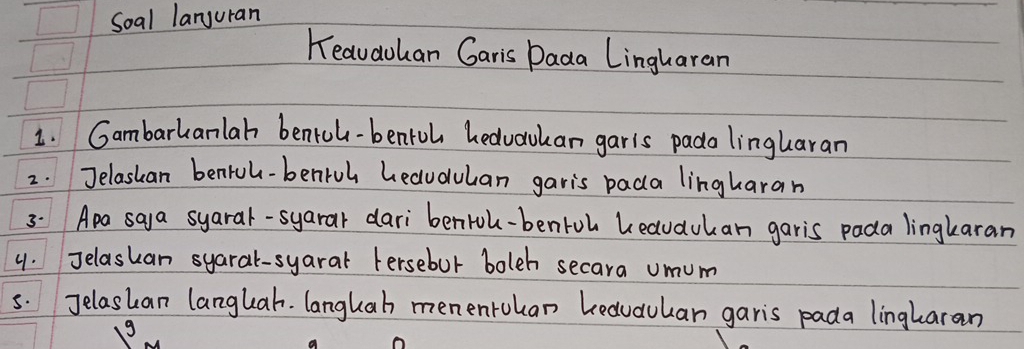 Soal lanjutan
Kedudukan Garis Pada Lingkaran
1. Gambarkanlah bentuk-bentuk kedudukan garis pada lingkaran
2. Jelaskan bentuk-bentuk kedudukan garis pada lingkaran
3. Apa saja syarat-syarat dari bentuk-bentuk kedudukan garis pada lingkaran
4. Jelaskan syarat-syarat tersebut boleh secara umum
5. Jelaskan langkah-langkah menentukan kedudukan garis pada lingkaran